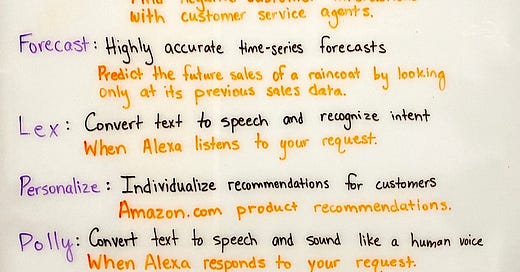 with customer service agents.
Forecast: Highly accurate time-series forecasts
Predict the future sales of a raincoat by looking
only at its previous sales data.
Lex: Convert text to speech and recognize intent
When Alexa listens to your request.
Personalize: Individualize recommendations for customers
Amazon.com product recommendations.
Polly: Convert text to speech and sound like a human voice
When Alexa responds to your request.